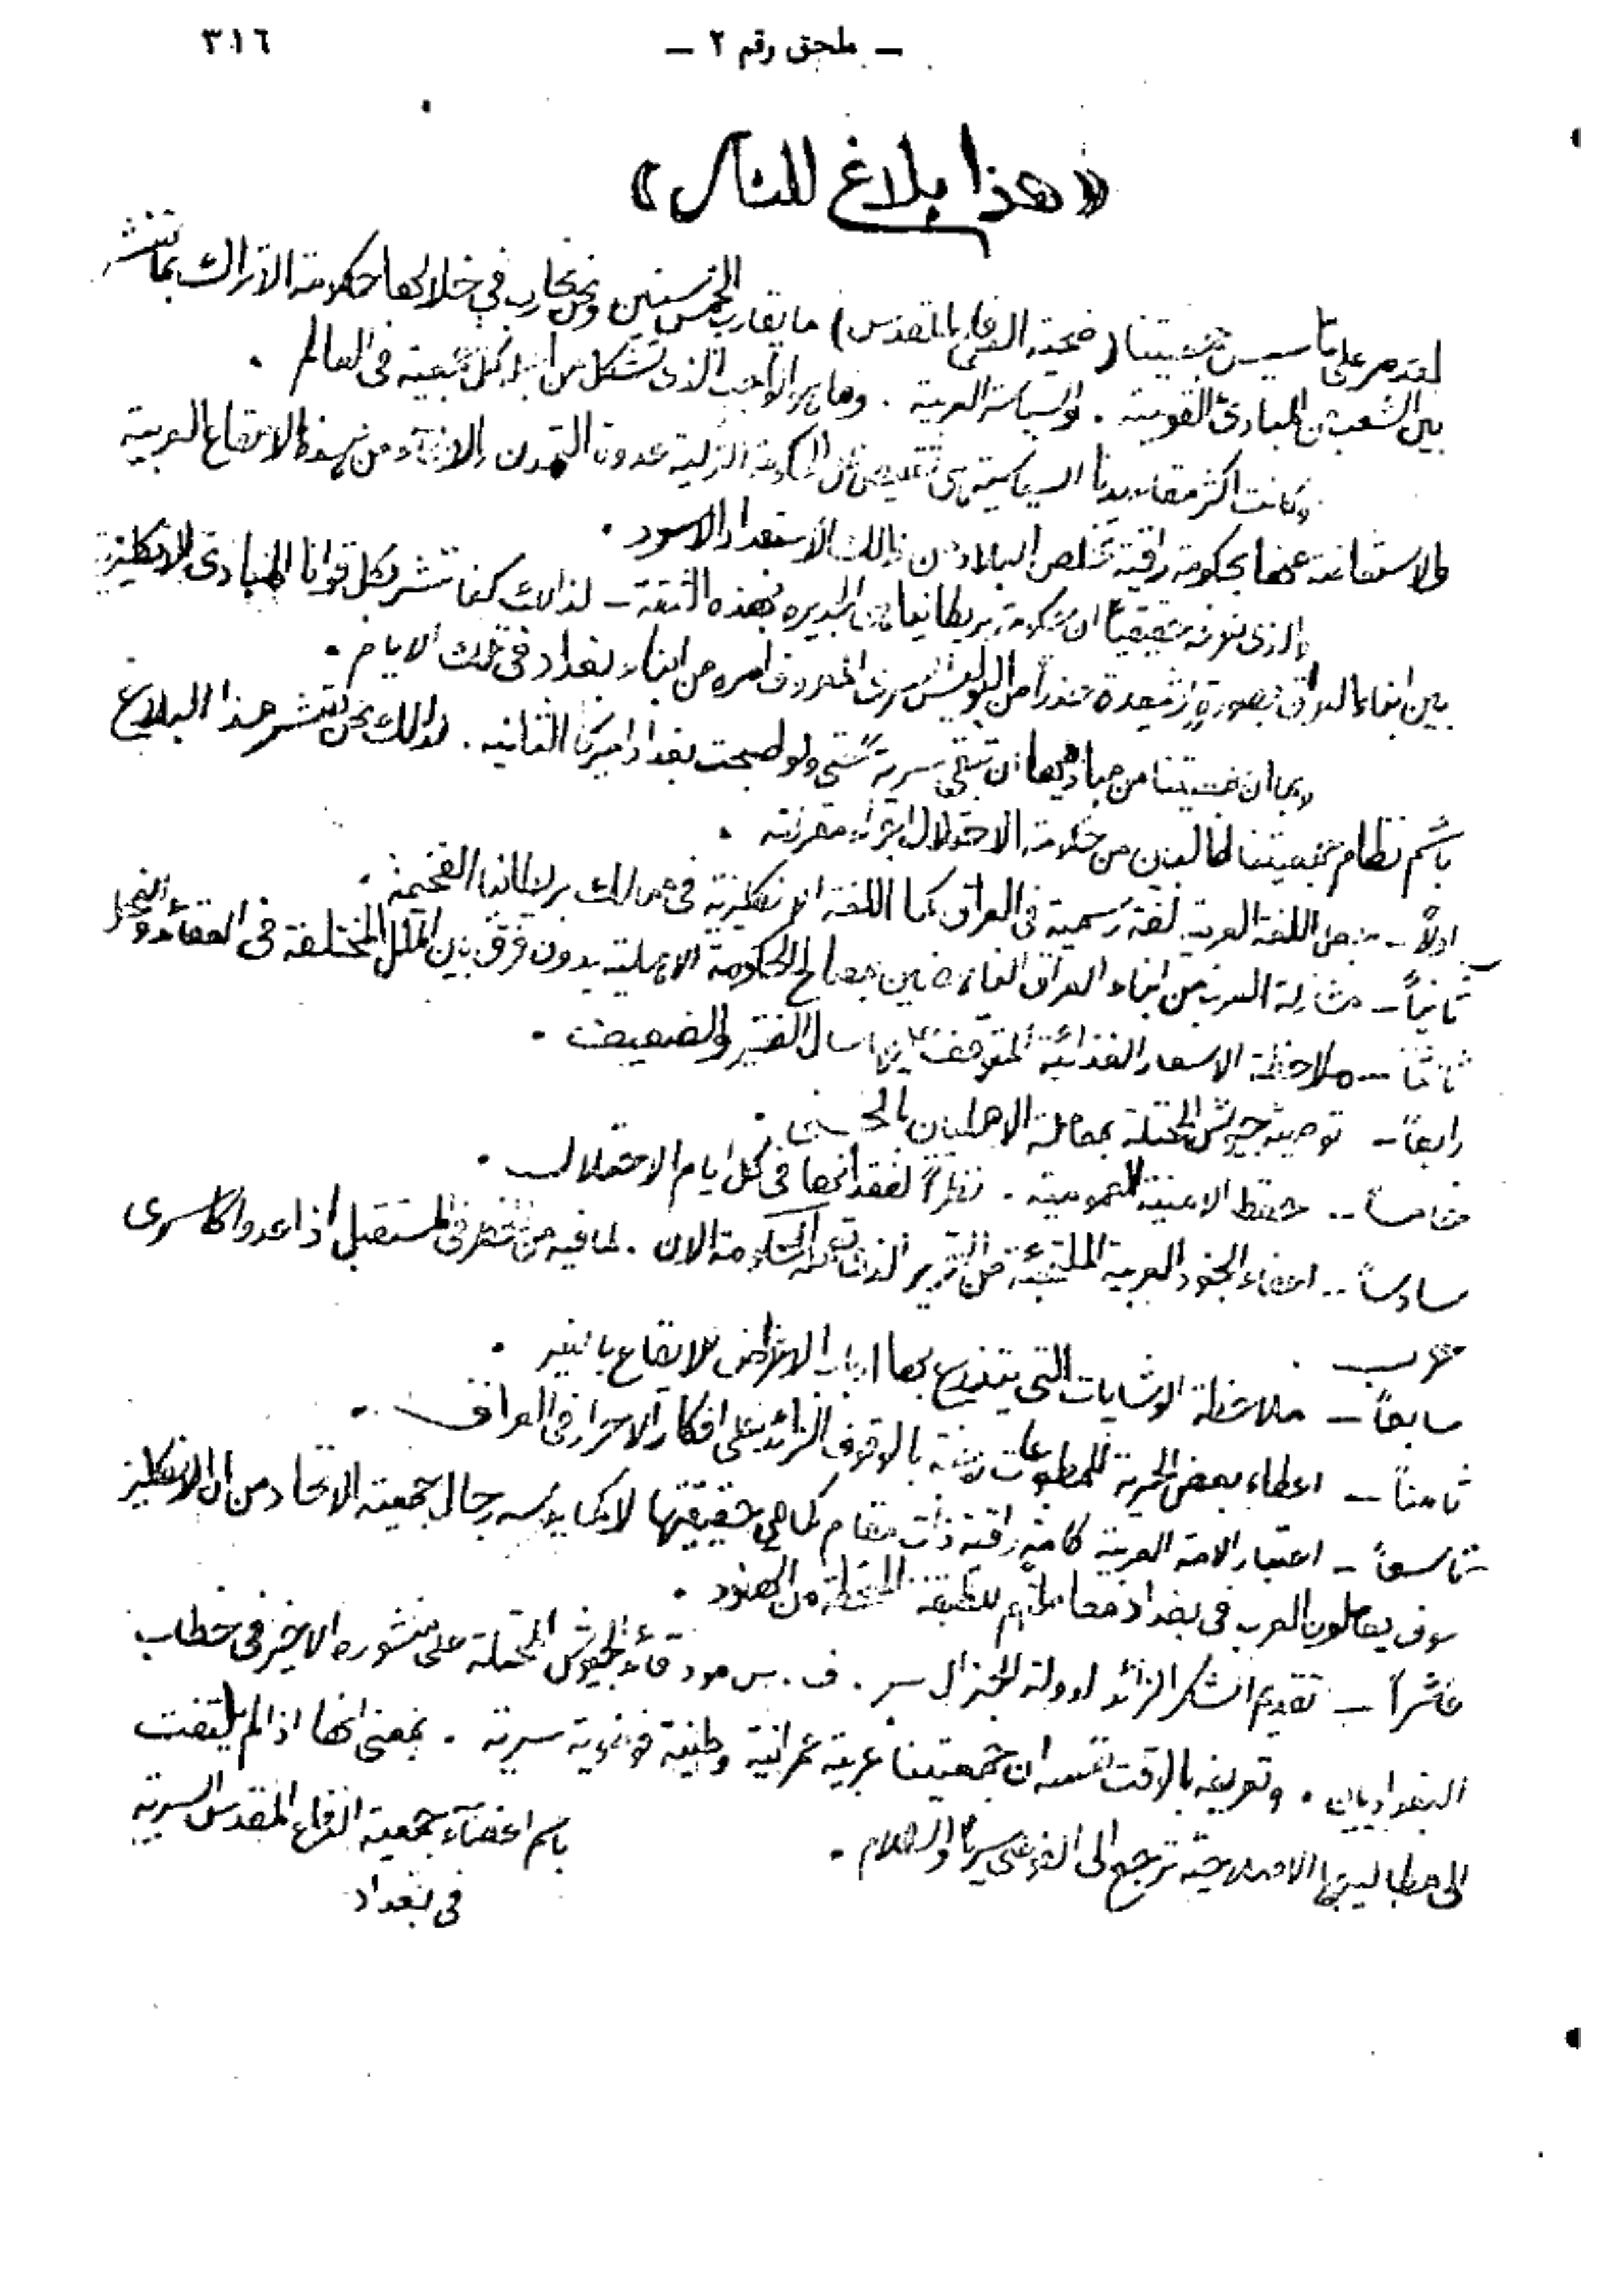 ٣١٦
— ملحق رقم ٢ —
«هذا بلاغ للناس»
لقد مر على تأسيس جمعيتنا ( المقدس) ما يقارب الخمس سنين ونحن نحارب في خلالها حكومة الاتراك بما ننشر
بين الشعب من المبادئ القومية . والسياسة العربية . وما هو الواجب الذي تشكل من اجله كل جمعية في العالم .
وكانت اكثر مقاصدنا السياسية هي الحكومة التركية عدوة التمدن والانسانية من هذه الاصقاع العربية
والاستعاضة عنها بحكومة راقية تخلص البلاد من ذالك الاستعباد الاسود .
والذي نعرفه حقيقياً ان حكومة بريطانيا هي الجديره بهذه الثقة — لذالك كنا ننشر بكل قوانا المبادئ الانكليزية
بين ابناء العراق بصورةٍ حذراً من البوليس السري المعروف امره من ابناء بغداد في تلك الايام .
وبما ان جمعيتنا من مبادئها ان تبقى سرية حتى ولو اصبحت بغداد اميركا الثانيه . لذالك نحن ننشر هذا البلاغ
باسم نظام جمعيتنا طالبين من حكومة الاحتلال اجراء مقررته .
اولاً — جعل اللغة العربية لغة رسمية في العراق كما اللغة الانكليزية في ممالك بريطانيا الفخيمة .
ثانياً — مشاركة العرب من ابناء العراق العارفين بمصالح الحكومة الاهلية بدون فرق بين الملل المختلفة في العقائد والنحل
ثالثاً — ملاحظة الاسعار الغذائية المتوقف عليها حال الفقير والضعيف .
رابعاً — توصية جيوش المحتلة بمعاملة الاهليين بالحسنى .
خامساً — حفظ الامنية العمومية . نظراً لفقدانها في كل ايام الاحتلال .
سادساً — اعفاء الجنود العربية الملتجئة من الذي تعمله الحكومة الان . لما فيه من خطر في المستقبل اذا عدوا كاسرى
حرب .
سابعاً — ملاحظة الوشايات التي يتذرع بها ارباب الاغراض للايقاع بالغير .
ثامناً — اعطاء بعض الحرية للمطبوعات رغبة بالوقوف الزائد على افكار الاحرار في العراق .
تاسعاً — اعتبار الامة العربية كامة راقية ذات مقام كما هي حقيقتها لا كما يدسه رجال جمعية الاتحاد من ان الانكليز
سوف يعاملون العرب في بغداد معاملتهم للطبقة المنحطة من الهنود .
عاشراً — تقديم الشكر الزائد لدولة الجنرال سر . ف . س مود قائد الجيوش المحتلة على منشوره الاخير في خطاب
البغداديين . وتعريفه بالوقت نفسه ان جمعيتنا عربية عمرانية وطنية فوضوية سرية . بمعنى انها اذا لم يلتفت
الى مطاليبها الاصلاحية ترجع الى الفوضى سريعاً والسلام .
باسم اعضآء جمعية الدفاع المقدس السرية
في بغداد